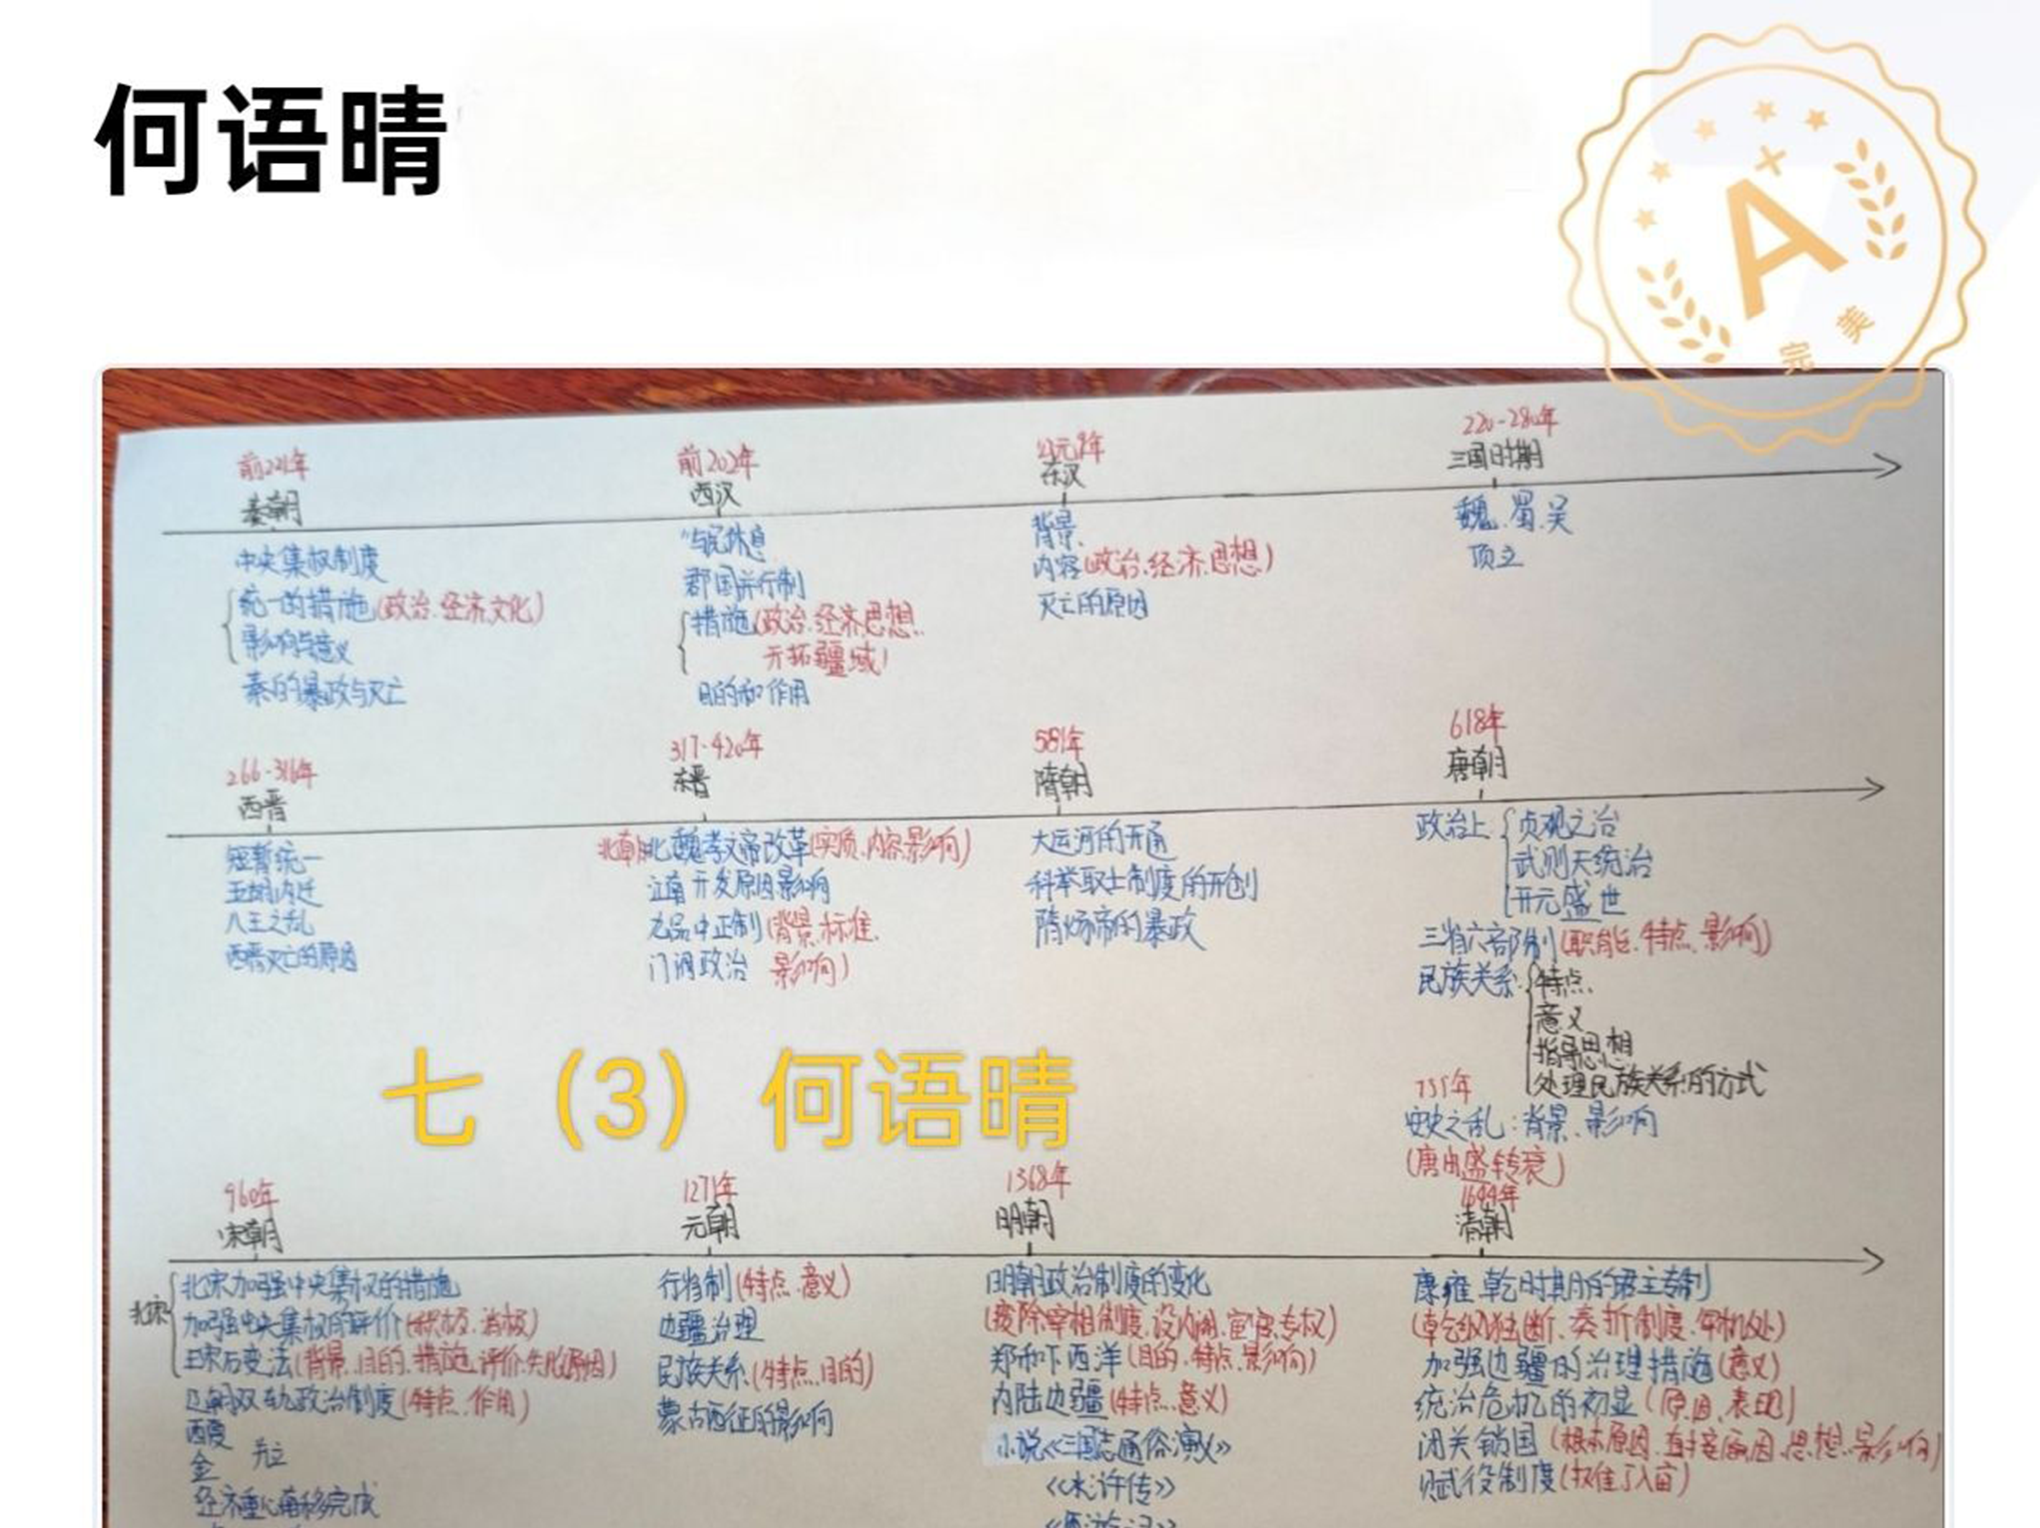 何语晴
A
完美
前221年
秦朝
前202年
西汉
公元9年
东汉
220-280年
三国时期
中央集权制度
统一的措施(政治.经济.文化)
影响与意义
秦的暴政与灭亡
与民休息
郡国并行制
措施(政治.经济.思想.
开拓疆域)
目的和作用
背景.
内容(政治.经济.思想)
灭亡的原因
魏.蜀.吴
顶立
266-316年
西晋
317-420年
东晋
581年
隋朝
618年
唐朝
短暂统一
五胡内迁
八王之乱
西晋灭亡的原因
北魏孝文帝改革(实质.内容.影响)
江南开发原因影响
九品中正制(背景.标准.
门阀政治 影响)
大运河的开通
科举取士制度的开创
隋炀帝的暴政
政治上
贞观之治
武则天统治
开元盛世
三省六部制(职能.特点.影响)
民族关系
特点.
意义
指导思想
处理民族关系的方式
755年
安史之乱:背景.影响
(唐由盛转衰)
七（3）何语晴
960年
宋朝
1271年
元朝
1368年
明朝
1644年
清朝
北宋
北宋加强中央集权的措施
加强中央集权的评价(积极.消极)
王安石变法(背景.目的.措施.评价.失败原因)
辽朝双轨政治制度(特点.作用)
西夏
金
经济重心南移完成
行省制(特点.意义)
边疆治理
民族关系(特点.目的)
蒙古西征的影响
明朝政治制度的变化
(废除宰相制度.设内阁.宦官专权)
郑和下西洋(目的.特点.影响)
内陆边疆(特点.意义)
小说《三国志通俗演义》
《水浒传》
《西游记》
康雍乾时期的君主专制
(乾纲独断、奏折制度.军机处)
加强边疆的治理措施(意义)
统治危机的初显(原因、表现)
闭关锁国(根本原因.直接原因.思想.影响)
赋役制度(摊丁入亩)